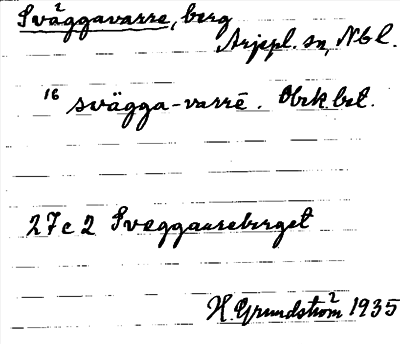 Svä²ggavarre, berg
Arjepl. sn, Nbl.
¹⁶ svägga-varrē. Obrk. bet.
27c2 Sveggaureberget
H. Grundström² 1935